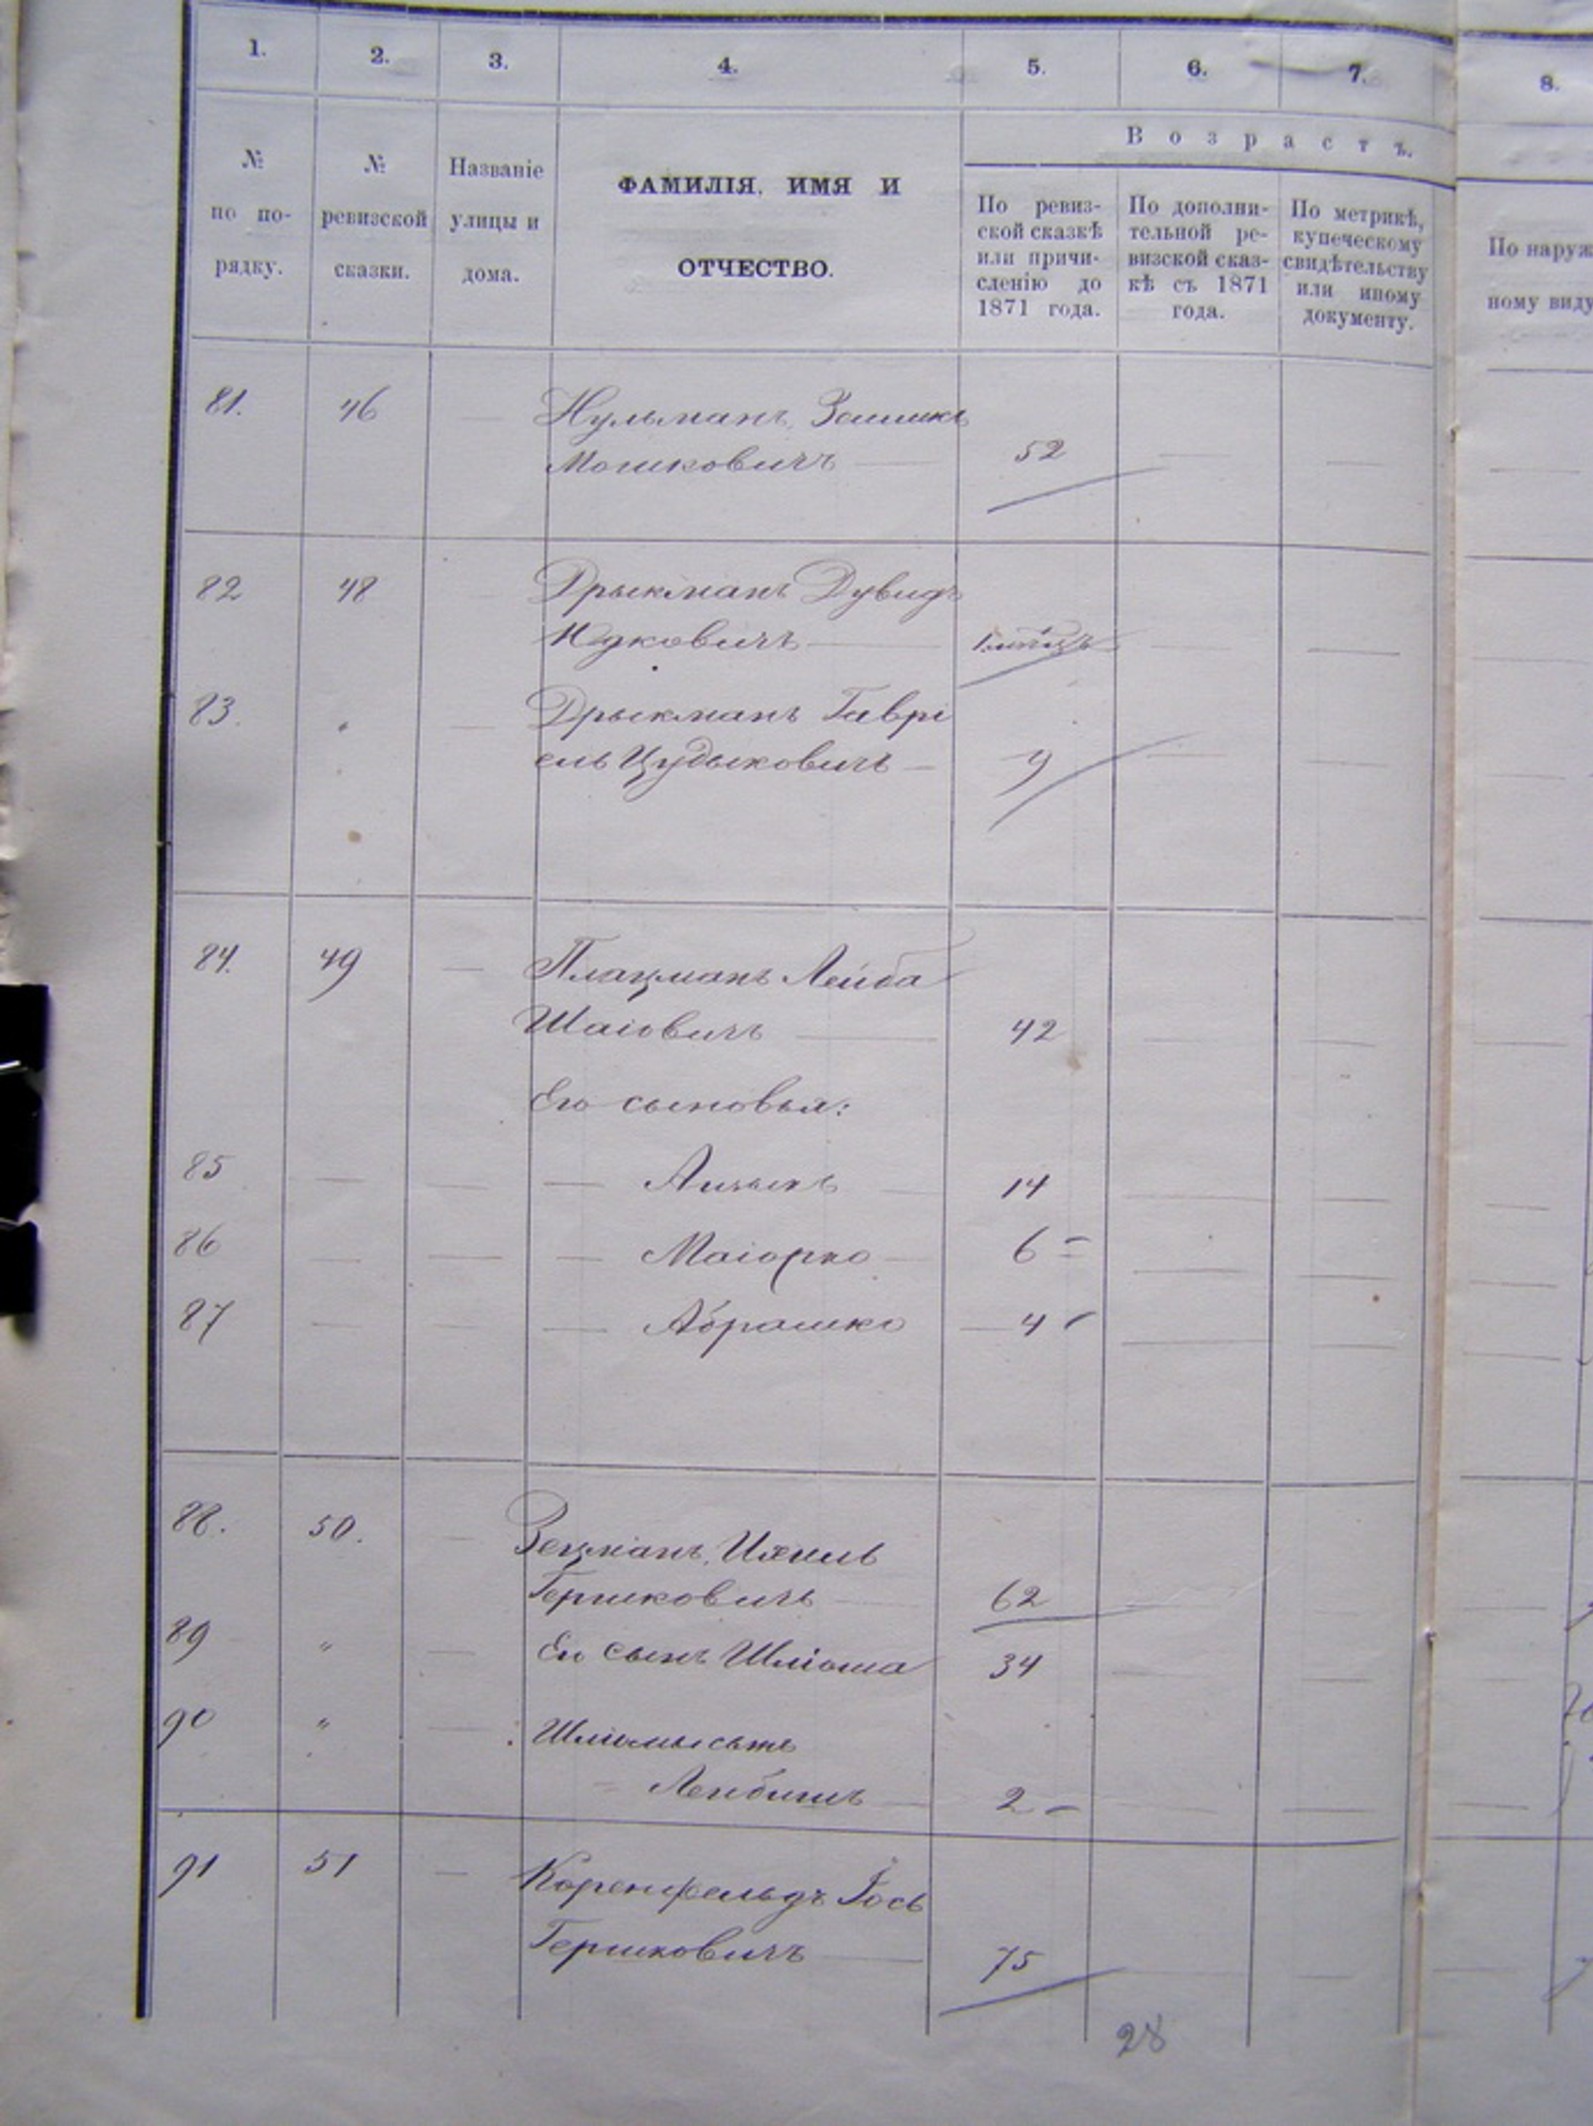 1. 2. 3. 4. 5. 6. 7. 8.
№ по по-рядку.
№ ревизской сказки.
Названіе улицы и дома.
ФАМИЛІЯ, ИМЯ И
ОТЧЕСТВО.
Возрастъ.
По ревиз-
ской сказкѣ
или причи-
сленію до
1871 года.
По дополни-
тельной ре-
визской сказ-
кѣ съ 1871
года.
По метрикѣ,
купеческому
свидѣтельству
или иному
документу.
По наруж
ному виду
81. 46 — Нульманъ
Мошковичъ — 52 — —
82 48 Дрыкманъ Дувидъ
Юдковичъ — — —
83. " — Дрыкманъ Гаврі
ель Цудыковичъ — 9 — —
84. 49 — Плацманъ Лейба
Шаіовичъ — 42 — —
Его сыновья:
85 — — — Аизыкъ — 14 — —
86 — — — Маіорко — 6 — —
87 — — — Абрашко — 4 — —
88. 50. — Зецманъ, Ихиль
Гершковичъ — 62 — —
89 " — Его сынъ Шліома 34 — —
90 " — Шліомы сынъ
Лейбишъ — 2 — —
91 51 — Коренфельдъ Іось
Гершковичъ — 75 — —
28